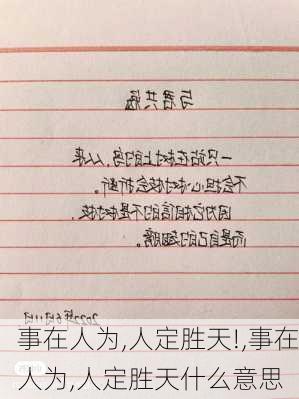 与君共勉
一只站在树上的鸟，从来
不会担心树枝会折断。
因为它相信的不是树枝，
而是自己的翅膀。
2022年6月11日
事在人为,人定胜天!,事在
人为,人定胜天什么意思